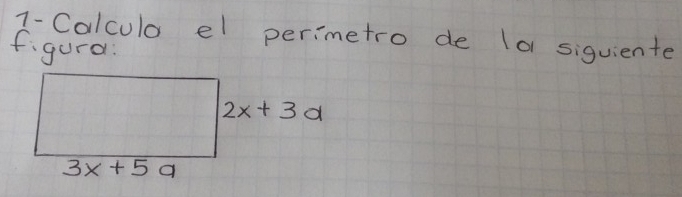 1-Calcula el perímetro de la siguiente
figura:
2x+3a
3x+5a